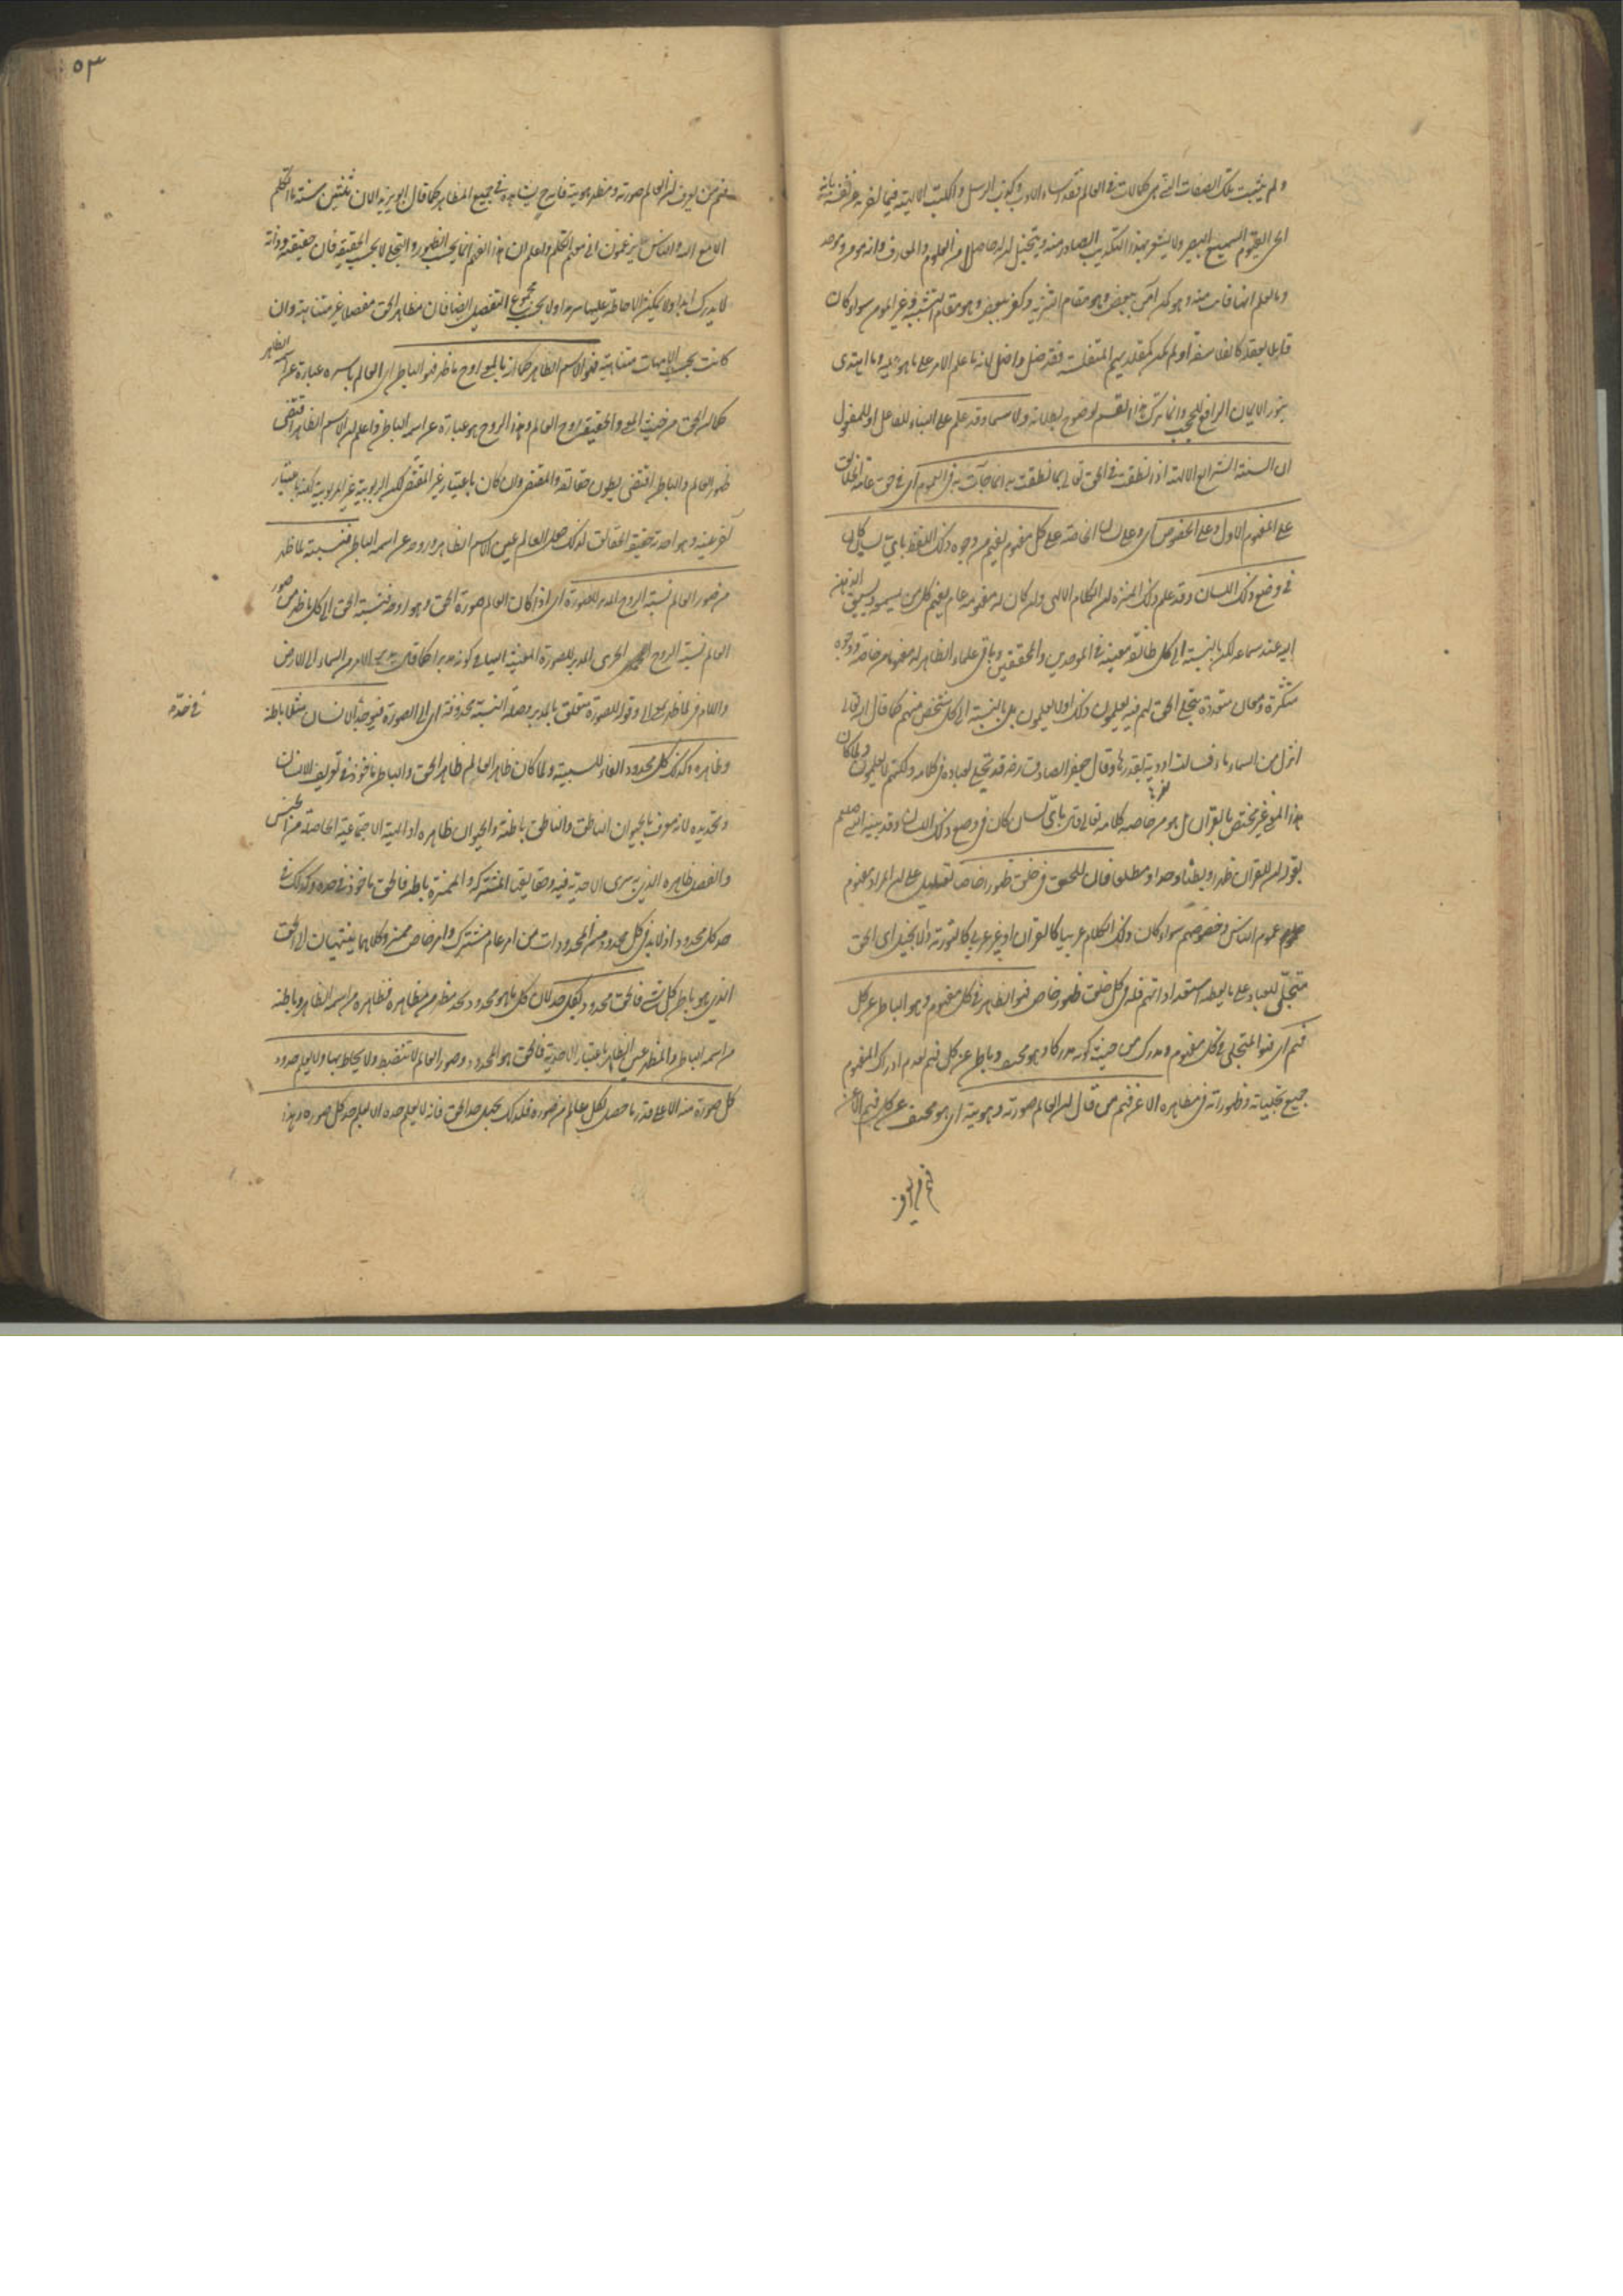 ولم يثبت تلك الصفات التي هي كمالات في العالم فقد اساء الادب وكذب الرسل والكتب الالهية فيما اخبر به عن نفسه بانه
الحي القيوم السميع البصير ولا يشعر بهذا التكذيب الصادر منه ويتخيل ان له حاصلا من العلوم والمعارف وانه مؤمن وموحد
وما يعلم انه فات منه وهو كمن آمن ببعض وهو مقام التنزيه وكفر ببعض وهو مقام التشبيه وغير المؤمن سواء كان
قائلا بعقله كالفلاسفة او لم يكن كمقلديهم المتفلسفة فقد ضل واضل لانه ما علم الامر على ما هو عليه وما اهتدى
بنور الايمان الرافع للحجب وانما ترك هذا القسم لوضوح بطلانه ولا سيما وقد علم على البناء للفاعل او للمفعول
ان السنة الشرايع الالهية اذا نطقت في الحق تعالى بما نطقت به انما جاءت به في العموم اي في حق عامة الخلائق
على المفهوم الاول وعلى الخصوص اي وعلى لسان الخاصة على كل مفهوم يفهم من وجوه ذلك اللفظ باي لسان كان
في وضع ذلك اللسان وقد علم ذلك المنزه ان الكلام الالهي وان كان له مفهومه عام يفهم كل من يسمعه ويسبق الذهن
اليه عند سماعه لكن بالنسبة الى كل طائفة معينة في الموحدين والمحققين وباقي علماء الظاهر له مفهومات خاصة ووجوه
متكثرة ومعان متعددة يتجلى الحق لهم فيه يعلمون ذلك او لا يعلمون بل بالنسبة الى كل شخص منهم كما قال الله تعالى
انزل من السماء ماء فسالت اودية بقدرها وقال جعفر الصادق رضه قد تجلى لعباده في كلامه ولكنهم لا يعلمون ولما كان
هذا المعنى غير مختص بالقرآن بل هو من خاصة كلامه تعالى قال باي لسان كان في وضع ذلك اللسان وقد بينه النبي صلعم
بقوله ان للقرآن ظهرا وبطنا وحدا ومطلعا فان للحق في كل خلق ظهورا خاصا تعليل على ان المراد مفهوم
عموم الناس وخصوصهم سواء كان ذلك الكلام عربيا كالقرآن او غير عربي كالتورية والانجيل اي الحق
متجلي للعباد على ما يعطيه استعداداتهم فله في كل خلق ظهور خاص فهو الظاهر في كل مفهوم وهو الباطن عن كل
فهم اي فهو المتجلي في كل مفهوم ومدرك من حيث كونه مدركا وهو مختف وباطن عن كل فهم لعدم ادراك المفهوم
جميع تجلياته وظهوراته في مظاهره الا عن فهم من قال ان العالم صورته وهويته اي هو مختف عن كل فهم الا عن
٥٣
فهم من يعرف ان العالم صورته ومظهر هويته فانه ح يشاهده في جميع المظاهر كما قال ابو يزيد الان ثلثين سنة ما اتكلم
الا مع الله والناس يزعمون اني معهم اتكلم واعلم ان هذا الفهم انما بحسب الظهور والتجلي لا بحسب الحقيقة فان حقيقته وذاته
لا يدرك ابدا ولا يمكن الاحاطة عليها سرمدا ولا بحسب مجموع التفصيل ايضا فان مظاهر الحق مفصلا غير متناهية وان
كانت بحسب الامهات متناهية فهو الاسم الظاهر كما انه بالمعنى روح ما ظهر فهو الباطن اي العالم باسره عبارة عن اسمه الظاهر
كما ان الحق من حيث المعنى والحقيقة روح العالم وهذا الروح هو عبارة عن اسمه الباطن واعلم ان الاسم الظاهر اقتضى
ظهور العالم والباطن اقتضى بطون حقائقه والمقتضى وان كان باعتبار غير المقتضى لكن الربوبية غير المربوبية لكنه باعتبار
آخر عينه وهو احدية حقيقة الحقائق لذلك جعل العالم عين الاسم الظاهر وروحه عن اسمه الباطن فنسبته لما ظهر
من صور العالم نسبة الروح المدبر للصورة اي اذا كان العالم صورة الحق وهو روحه فنسبة الحق الى كل ما ظهر من صور
العالم نسبة الروح الجزئي المدبر للصورة المعينة اليها في كونه مدبرا كما قال يدبر الامر من السماء الى الارض
واللام في لما ظهر بمعنى الى وقوله للصورة متعلق بالمدبر وصلة النسبة محذوفة اي الى الصورة فيؤخذ الانسان مثلا باطنه
في حده
وظاهره وكذلك كل محدود الفاء للسببية ولما كان ظاهر العالم ظاهر الحق والباطن ماخوذ في تعريف الانسان
وتحديده لانه معرف بالحيوان الناطق والناطق باطنه والحيوان ظاهره او الهيئة الاجتماعية الحاصلة من الجنس
والفصل ظاهره الذي به سرى الاحدية فيه وحقايق المشتركة والمميزة باطنه فالحق ماخوذ في حده وكذلك في
حد كل محدود اذ لا بد في كل محدود من المحدودات من امر عام مشترك وامر خاص مميز وكلاهما ينتهيان الى الحق
الذي هو باطن كل شيء فالحق محدود بكل حد لان كل ما هو محدود بحد مظهر من مظاهره فظاهره من اسمه الظاهر وباطنه
من اسمه الباطن والمظهر عين الظاهر باعتبار الاحدية فالحق هو المحدود وصور العالم لا تنضبط ولا يحاط بها ولا يعلم حدود
كل صورة منه الا على قدر ما حصل لكل عالم من صوره فلذلك يجهل حد الحق فانه لا يعلم حده الا بعلم حد كل صورة وهذا